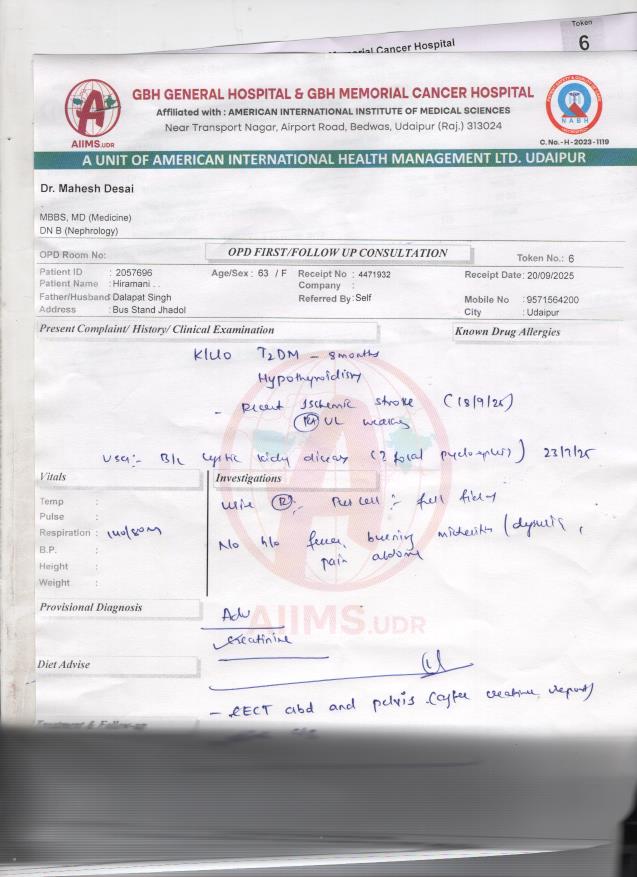 Token
Memorial Cancer Hospital
6
GBH GENERAL HOSPITAL & GBH MEMORIAL CANCER HOSPITAL
Affiliated with : AMERICAN INTERNATIONAL INSTITUTE OF MEDICAL SCIENCES
Near Transport Nagar, Airport Road, Bedwas, Udaipur (Raj.) 313024
AIIMS.UDR
NABH
C. No.-H-2023-1119
A UNIT OF AMERICAN INTERNATIONAL HEALTH MANAGEMENT LTD. UDAIPUR
Dr. Mahesh Desai
MBBS, MD (Medicine)
DN B (Nephrology)
OPD Room No: OPD FIRST/FOLLOW UP CONSULTATION Token No.: 6
Patient ID : 2057696 Age/Sex : 63 / F Receipt No : 4471932 Receipt Date: 20/09/2025
Patient Name : Hiramani . . Company :
Father/Husband Dalapat Singh Referred By : Self Mobile No : 9571564200
Address : Bus Stand Jhadol City : Udaipur
Present Complaint/ History/ Clinical Examination Known Drug Allergies
K/C/O T2DM - 8 months
Hypothyroidism
- Recent Ischemic stroke (18/9/25)
UL weakness
USG:- B/L cystic kidney disease (? focal pyelonephritis)
Vitals Investigations
Temp :
Pulse :
Respiration : 140/80
B.P. :
Height :
Weight :
Urine (R):- Pus cell:- full field
No h/o fever, burning micturition / dysuria,
pain abdomen
Provisional Diagnosis
Adv
creatinine
AIIMS.UDR
Diet Advise
- CECT abd and pelvis (after creatinine report)
Treatment & Follow-up